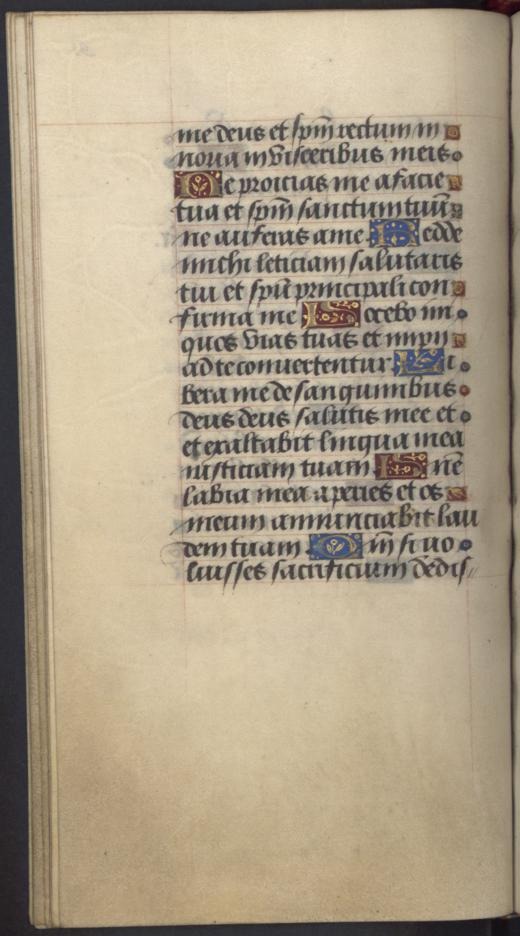 me deus et spm rectum in
noua in visceribus meis
Ne proicias me a facie
tua et spm sanctum tuū
ne auferas a me Redde
michi leticiam salutaris
tui et spū principali con
firma me Docebo ini
quos vias tuas et impii
ad te conuertentur Li
bera me de sanguinibus
deus deus salutis mee et
et exaltabit lingua mea
iusticiam tuam Dnē
labia mea aperies et os
meum annunciabit lau
dem tuam Qm si uo
luisses sacrificium dedis